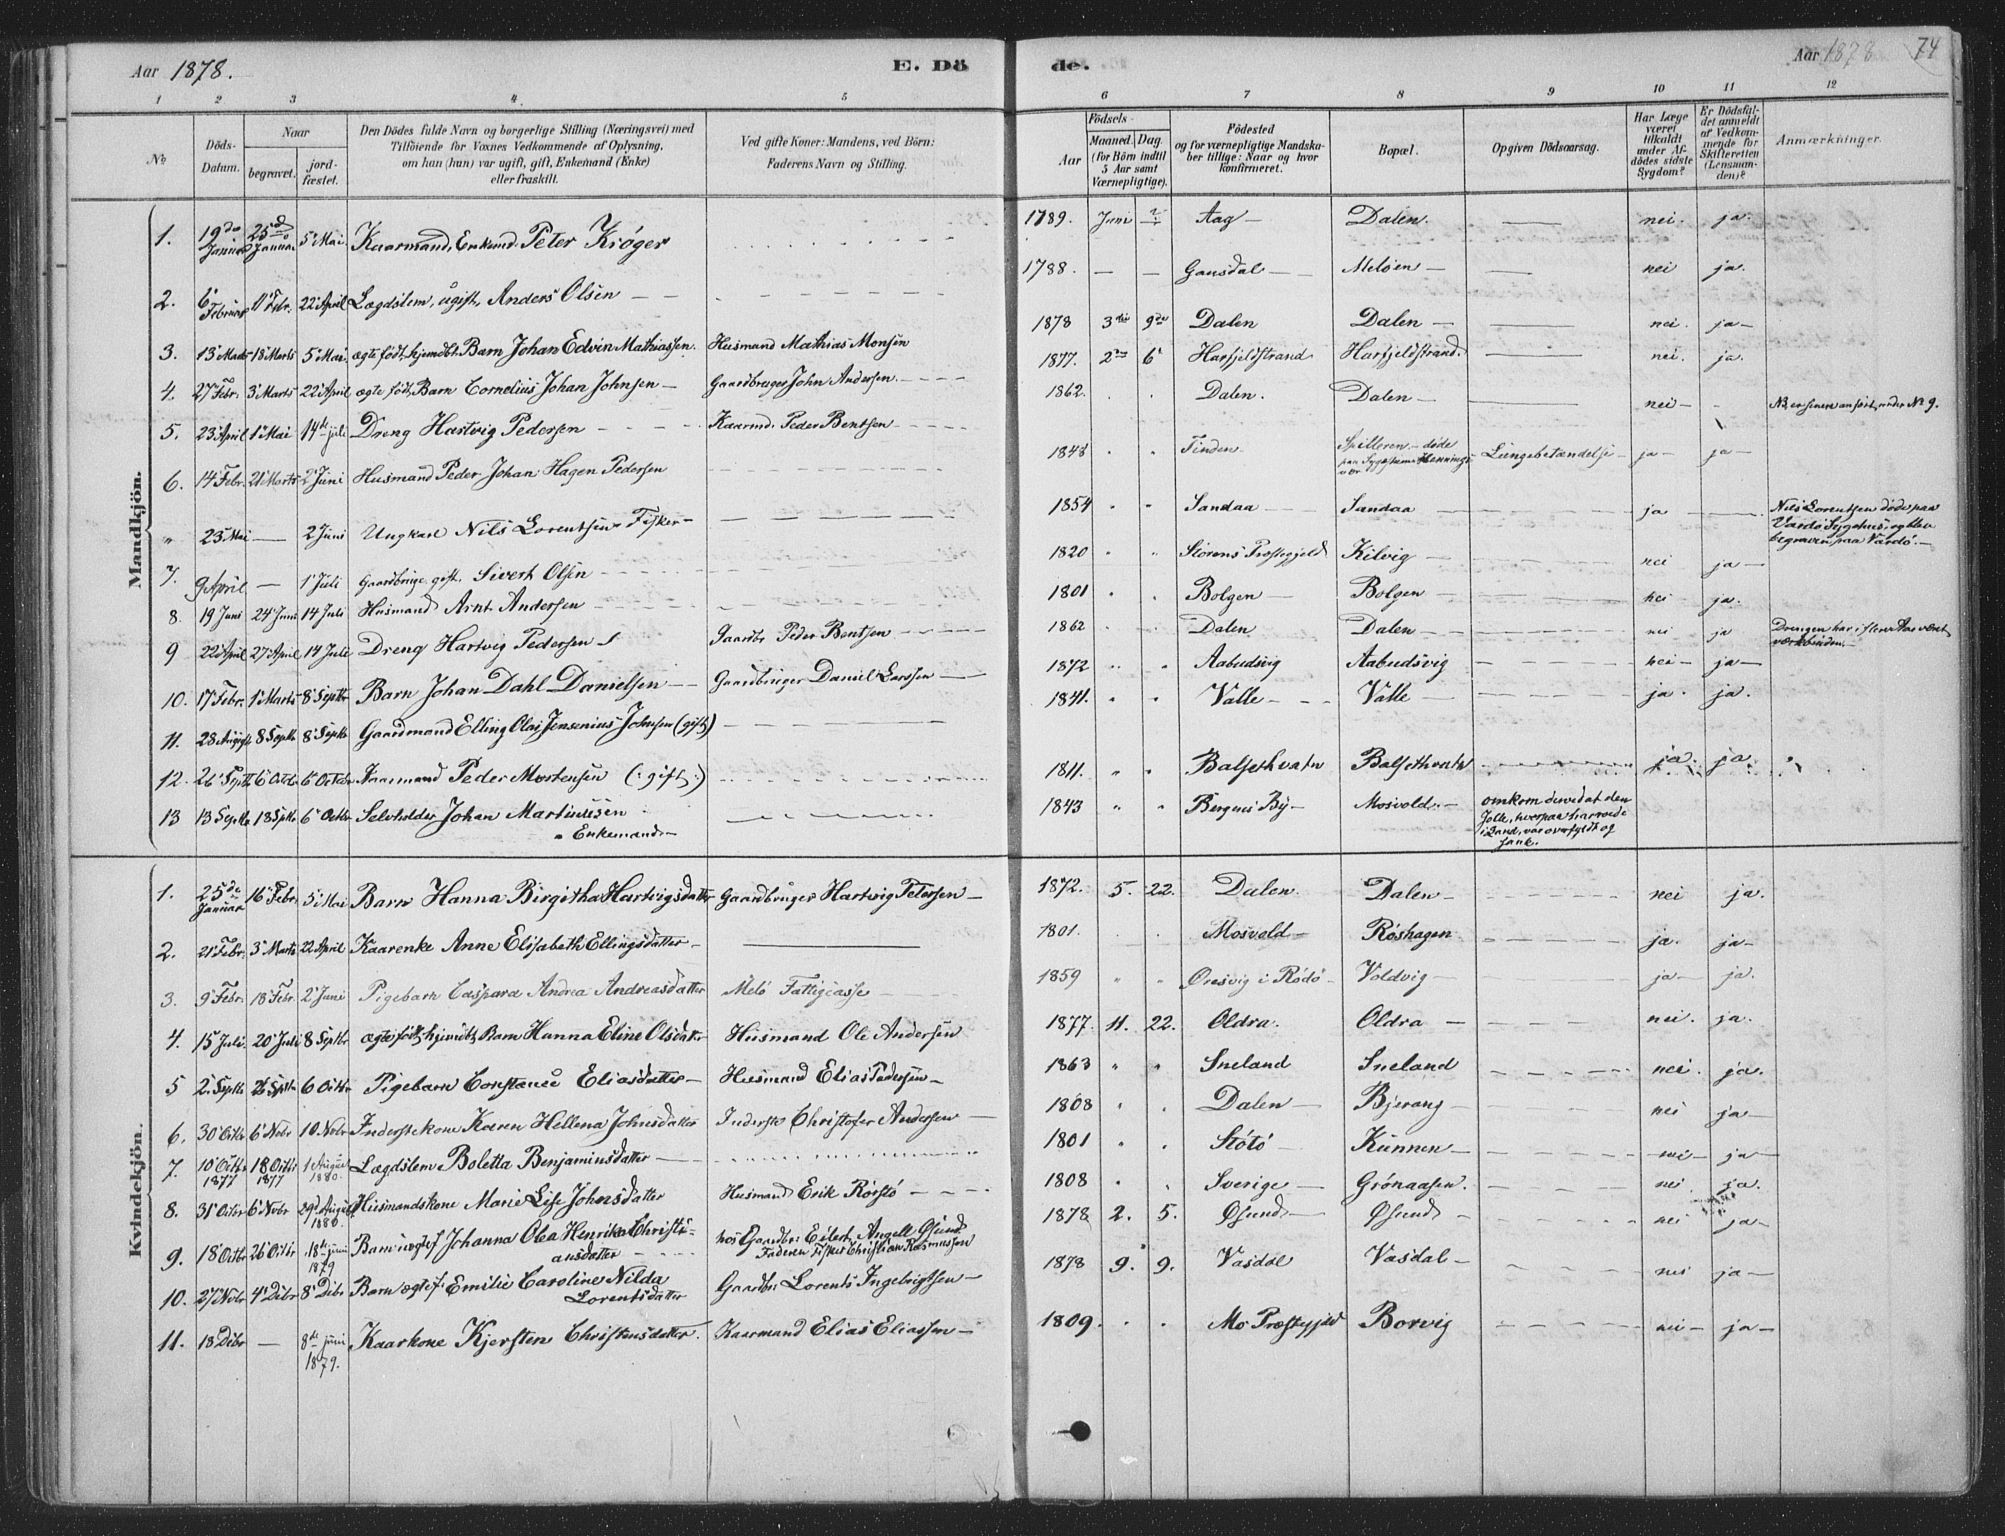 Aar 1878.
E. Dö
de.
Aar 1878
74
1 2 3 4. 5
6 7 8 9 10 11 12
No
Döds-Datum.
Naar
begravet.
jord-fæstet.
Den Dödes fulde Navn og borgerlige Stilling (Næringsvei) med
Tilföiende for Voxnes Vedkommende af Oplysning,
om han (hun) var ugift, gift, Enkemand (Enke)
eller fraskilt.
Ved gifte Koner: Mandens, ved Börn:
Faderens Navn og Stilling.
Födsels-
Aar
Maaned. Dag.
(for Börn indtil
5 Aar samt
Værnepligtige).
Födested
og for værnepligtige Mandska-
ber tillige: Naar og hvor
konfirmeret.
Bopæl.
Opgiven Dödsaarsag.
Har Læge
været
tilkaldt
under Af-
dödes sidste
Sygdom?
Er Dödsfal-
det anmeldt
af Vedkom-
mende for
Skifteretten
(Lensman-
den)?
Anmærkninger.
Mandkjön.
1. 19de Januar 25de Januar 5' Mai Kaarmand, Enkemd. Peter Krøger 1789. Juni Aag Dalen. nei. ja.
2. 6' Februar 11' Febr. 22' April Lægdslem, ugift, Anders Olsen 1788. Meløen nei ja.
3. 13' Marts 18' Marts 5' Mai. ægte født, hjemdbt. Barn Johan Edvin Mathiassen. Husmand Mathias Monsen 1878 9de Dalen Dalen nei. ja
4. 27' Febr. 3' Marts 22' April ægte født, Barn Cornelius Johan Johnsen Gaardbruger John Andersen. 1877. 6' Harfjeldstrand Harfjeldstrand. nei. ja.
5. 23' April 1' Mai 14de juli Dreng Hartvig Pedersen Kaarmd. Peder Bentsen 1862. Dalen. Dalen nei NB. er senere anført under No 9.
6. 14' Febr. 21' Marts 2' Juni Husmand Peder Johan Hagen Pedersen 1843 Finden døde paa Sygestuen Hennings-vær Lungebetændelse ja ja
" 23' Mai 2' Juni Ungkarl Nils Lorentsen Fisker 1854 Sandaa Sandaa ja Nils Lorentsen døde paa
Vardø Sygehus, og blev
begraven paa Vardø.
7. 9' April 1' Juli gift. Sivert Olsen 1820 Kilvig nei ja
8. 19 Juni 24' Juni 14 Juli Husmand Arnt Andersen 1801 Bolgen Bolgen nei ja.
9 22' April 27' April 14 Juli Dreng Hartvig Pedersen Gaardbr Peder Bentsen 1862 Dalen Dalen nei ja Drengen har i flere Aar været
10. 17' Febr. 1' Marts 8' Septbr Barn Johan Dahl Danielsen Gaardbruger Daniel Larssen 1872 Aabudsvig Aabudsvig nei ja
11. 28' August 8' Septbr 8' Septbr Gaardmand Elling Olai Jensenius Johnsen (gift) 1841. Valle Valle ja. ja.
12. 26' Septbr 6' Octbr 6' Octbr Kaarmand Peder Mortensen (: gift :) 1811. Balsethvatn Balsethvatn ja. ja.
13 13 Septbr 18 Septbr 6' Octbr Selvholder Johan Martinussen
Enkemand. 1843 Bergens By Mosvold omkom derved at den
Jolle, hvorpaa han roede
i Land, var overfyldt og
sank.
Kvindekjön.
1. 25de Januar 16' Febr. 5' Mai Barn Hanna Birgitha Hartvigsdatter Gaardbruger Hartvig Petersen 1872. 5. 22. Dalen. Dalen nei ja.
2. 21' Febr. 3' Marts 22 April Kaarenke Anne Elisabeth Ellingsdatter 1801. Mosvold Røshagen ja. ja
3. 9' Febr. 18' Febr. 2' Juni Pigebarn Caspara Andrea Andreasdatter Melø Fattigcasse 1859 Øresvig i Rødø Voldvig ja ja.
4. 15' Juli 20' Juli 8' Septbr ægtefødt, hjemdbt, Barn Hanna Eline Olsdatter Husmand Ole Andersen 1877. 11. 22. Oldra. Oldra nei. ja.
5 2. Septbr 26 Septbr 6 Octbr Pigebarn Constance Eliasdatter Husmand Elias Pedersen 1863 Sneland Sneland nei. ja.
6. 30' Octbr 6' Novbr 10 Novbr Inderstekone Karen Hellena Johnsdatter Inderste Christofer Andersen 1808 Dalen Bjerang nei ja
7. 10' Octbr 1877 18 Octbr 1877 1' August 1880. Lægdslem Boletta Benjaminsdatter 1801 Støtø Kunnen nei ja
8. 31' Octbr 6' Novbr 29de August 1880. Husmandskone Marie Lise Johnsdatter Husmand Erik Rørstø 1808 Sverige Grønaasen. nei. ja.
9. 18' Octbr 26' Octbr 18de juni 1879 Barn uægtef Johanna Olea Henrika Christi-
ansdatter hos Gaardbr: Eilert Angell Øsund
Faderen Fisker Christian Rasmussen 1878 2. 5. Øsund Øsund nei ja
10. 27' Novbr 4' Dcbr 8' Dcbr Barn ægtef: Emilie Caroline Nilda
Lorentsdatter Gaardbr: Lorents Ingebrigtsen 1878 9. 9. Vasdal Vasdal nei ja
11. 18 Dcbr 8de juni 1879. Kaarkone Kjersten Christensdatter. Kaarmand Elias Eliassen 1809. Mo Præstegjeld Borvig nei ja